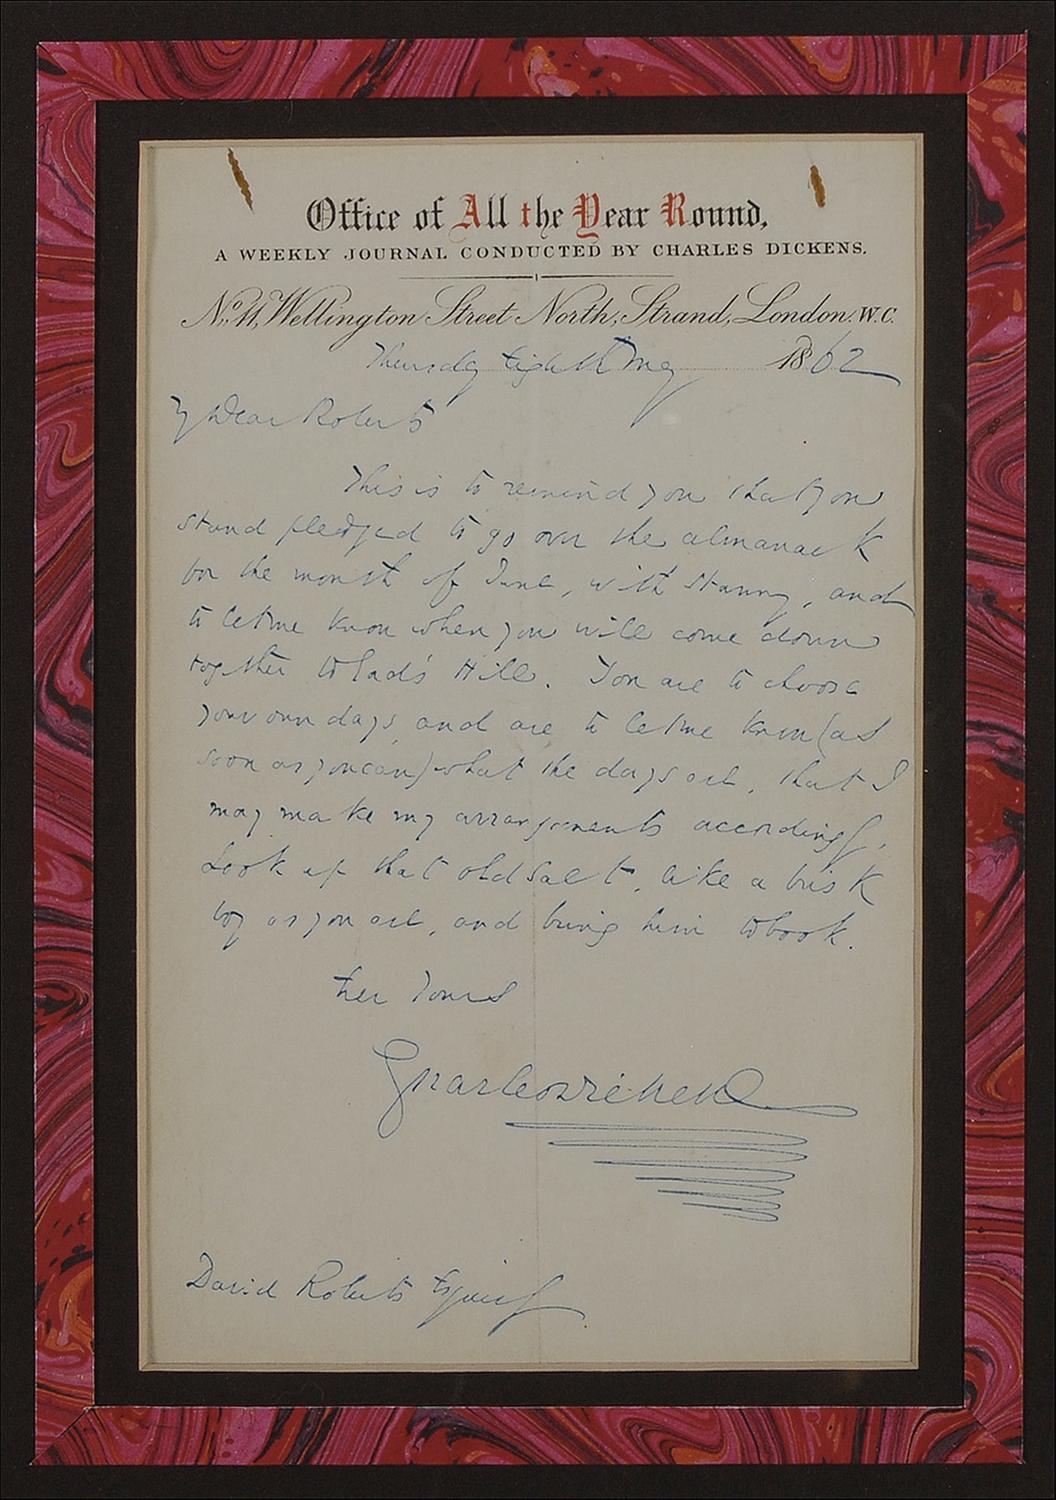 Office of All the Year Round,
A WEEKLY JOURNAL CONDUCTED BY CHARLES DICKENS.
No. 11, Wellington Street North, Strand, London. W.C.
Thursday Eighth May 1862
My Dear Roberts
This is to remind you that you
stand pledged to go over the almanack
for the month of June, with Stanny, and
to let me know when you will come down
together to Gad's Hill. You are to choose
your own days, and are to let me know (as
soon as you can) what the days are, that I
may make my arrangements accordingly.
Look up that old Salt, like a brisk
boy as you are, and bring him to book.
Ever Yours
Charles Dickens
David Roberts Esquire